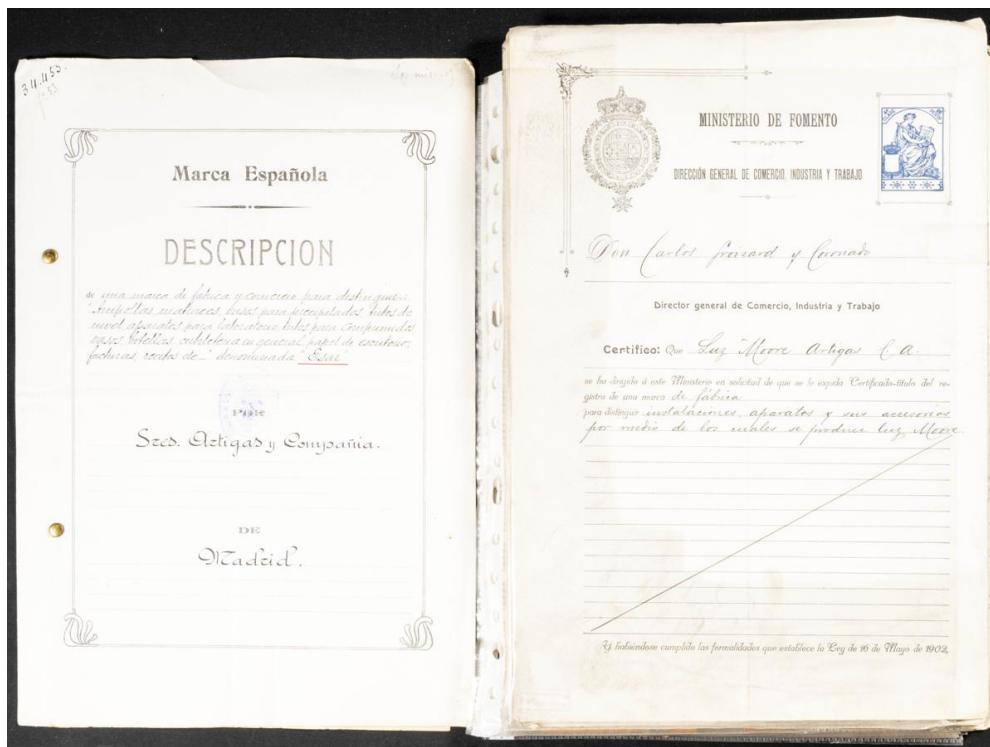 34.453.
Marca Española
DESCRIPCION
de una marca de fábrica y comercio para distinguir:
"Ampollas, matraces, vasos para precipitados, tubos de
nivel, aparatos para laboratorio, tubos para comprimidos
vasos, botellas, cubileteria en general, papel de escritorio,
facturas, sobres de" denominada "Esar"
POR
Sres. Artigas y Compañia.
DE
Madrid.
MINISTERIO DE FOMENTO
DIRECCIÓN GENERAL DE COMERCIO, INDUSTRIA Y TRABAJO
Don Carlos y Coronado
Director general de Comercio, Industria y Trabajo
Certifico: Que Luz Moore Artigas C. A.
se ha dirigido á este Ministerio en solicitud de que se le expida Certificado-título del re-
gistro de una marca de fábrica
para distinguir instalaciones, aparatos y sus accesorios
por medio de los cuales se produce luz Moore.
Y habiéndose cumplido las formalidades que establece la Ley de 16 de Mayo de 1902,